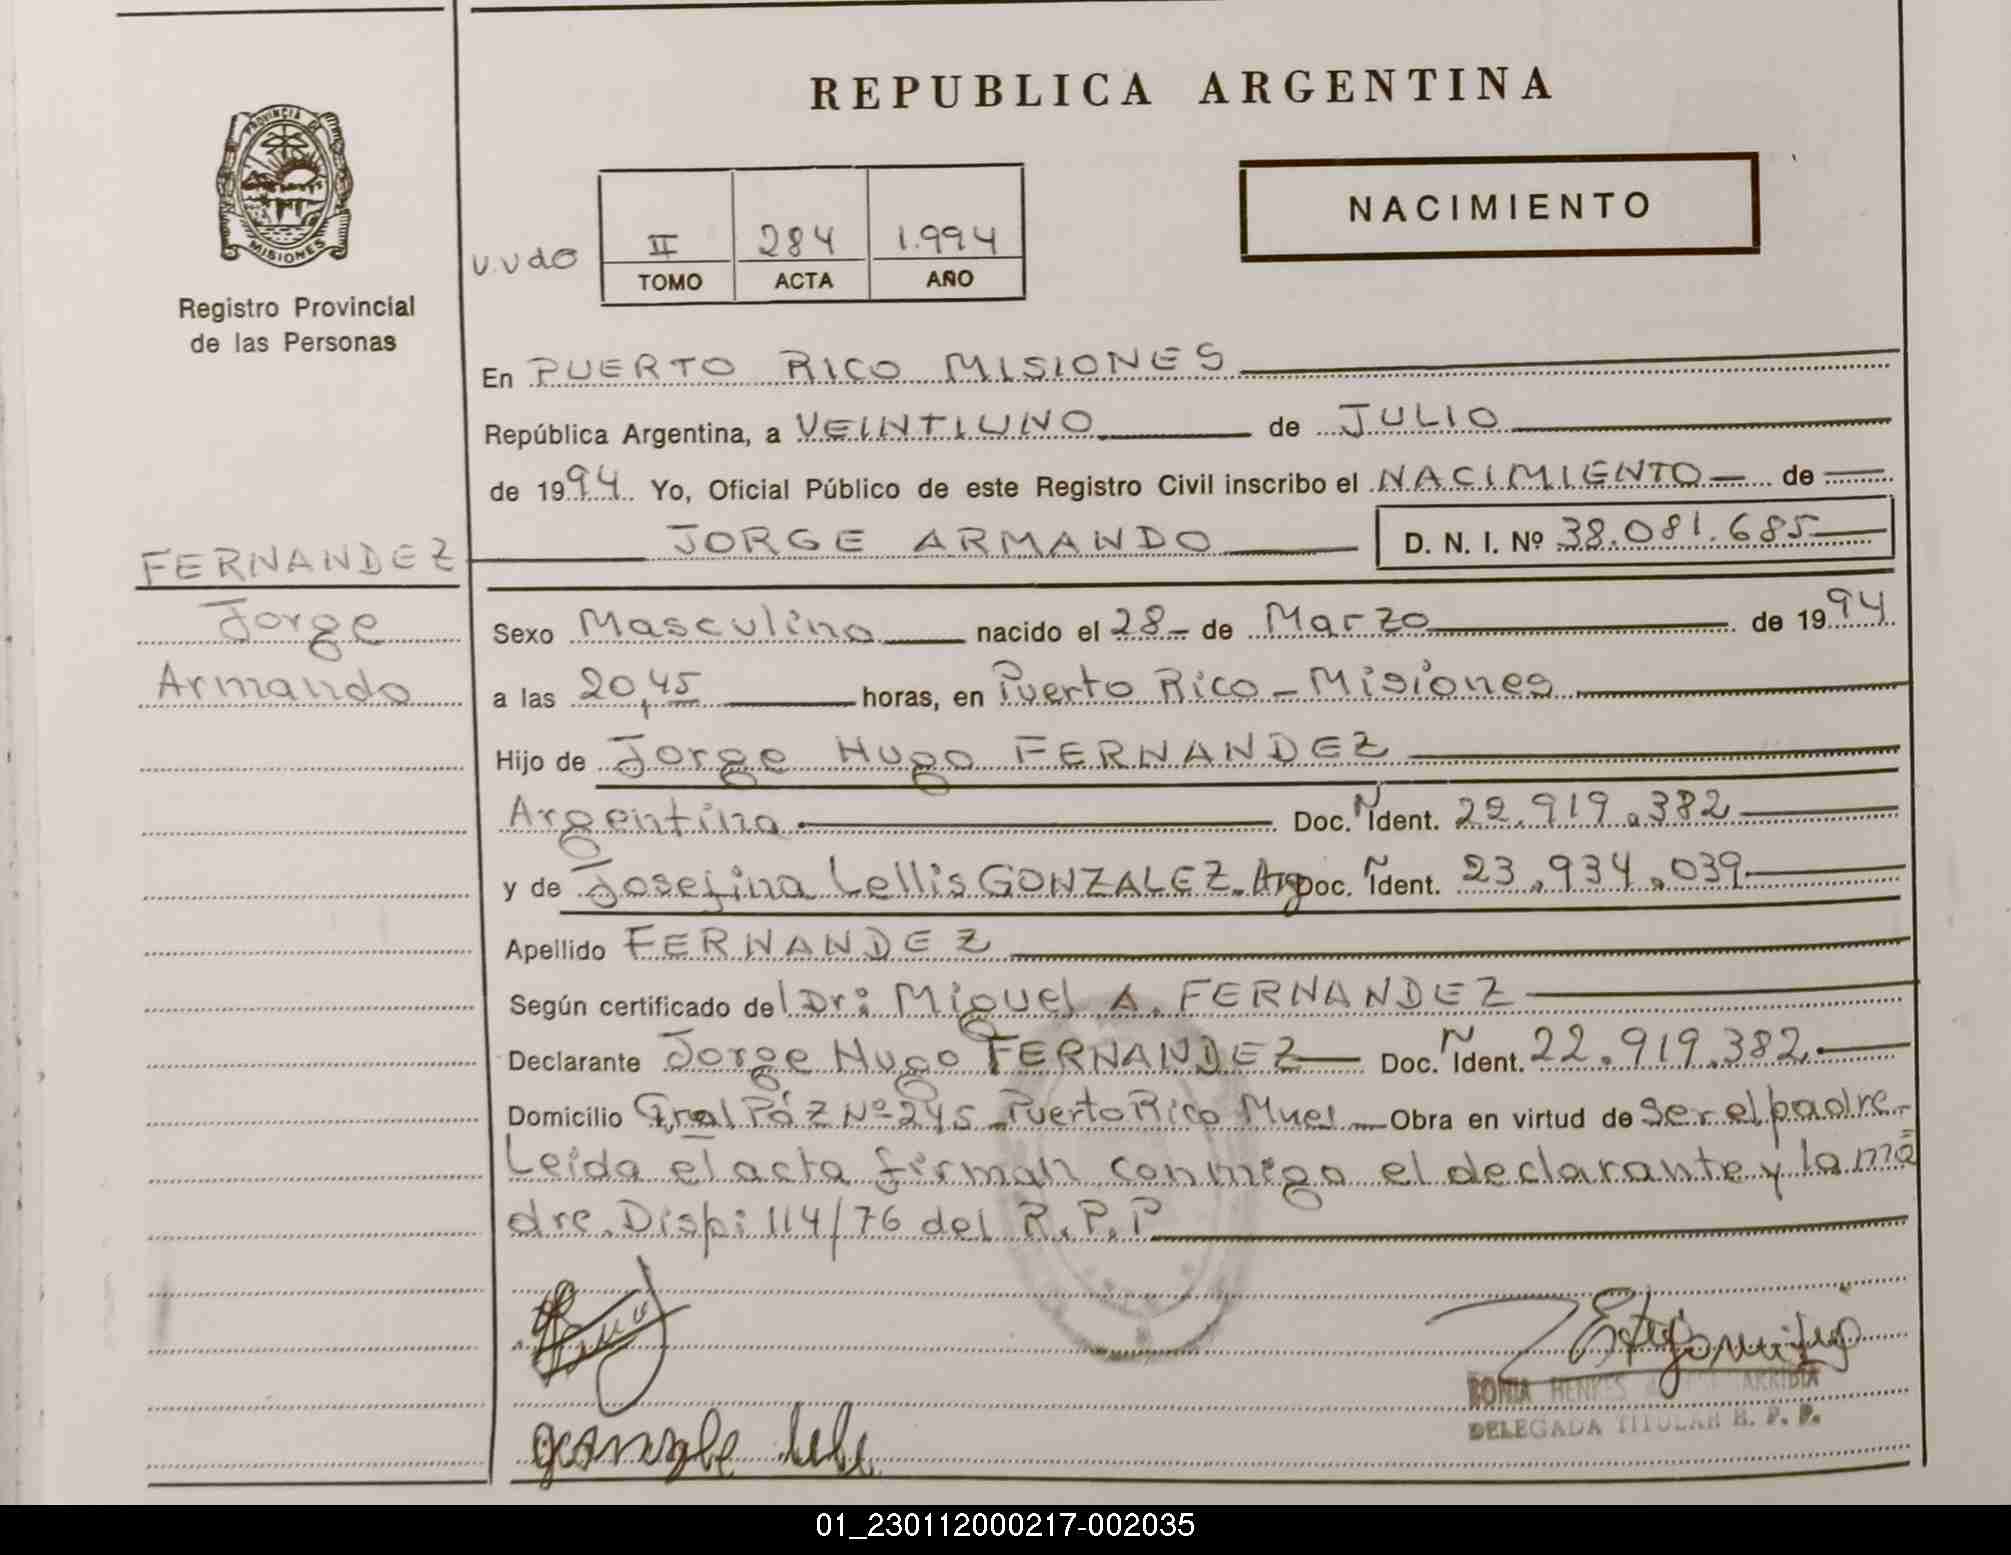 REPUBLICA ARGENTINA
PROVINCIA DE
MISIONES
Registro Provincial
de las Personas
NACIMIENTO
II 284 1.994
TOMO ACTA AÑO
En PUERTO RICO MISIONES
República Argentina, a VEINTIUNO de JULIO
de 1994. Yo, Oficial Público de este Registro Civil inscribo el NACIMIENTO de
JORGE ARMANDO D. N. I. Nº 38.081.685
FERNANDEZ
Jorge
Armando
Sexo Masculino nacido el 28 de Marzo de 1994
a las 20,45 horas, en Puerto Rico - Misiones
Hijo de Jorge Hugo FERNANDEZ
Argentina Doc. Ñ Ident. 22.919.382
y de Josefina Lellis GONZALEZ. Arg Doc. Ñ Ident. 23.934.039
Apellido FERNANDEZ
Según certificado del Dr: Miguel A. FERNANDEZ
Declarante Jorge Hugo FERNANDEZ Doc. Ñ Ident. 22.919.382
Domicilio Gral Páz Nº 245 Puerto Rico Mnes Obra en virtud de Ser el padre.
Leída el acta firman conmigo el declarante y la ma
dre. Disp: 114/76 del R.P.P
SONIA HENKES
DELEGADA TITULAR R. P. P.
01_230112000217-002035